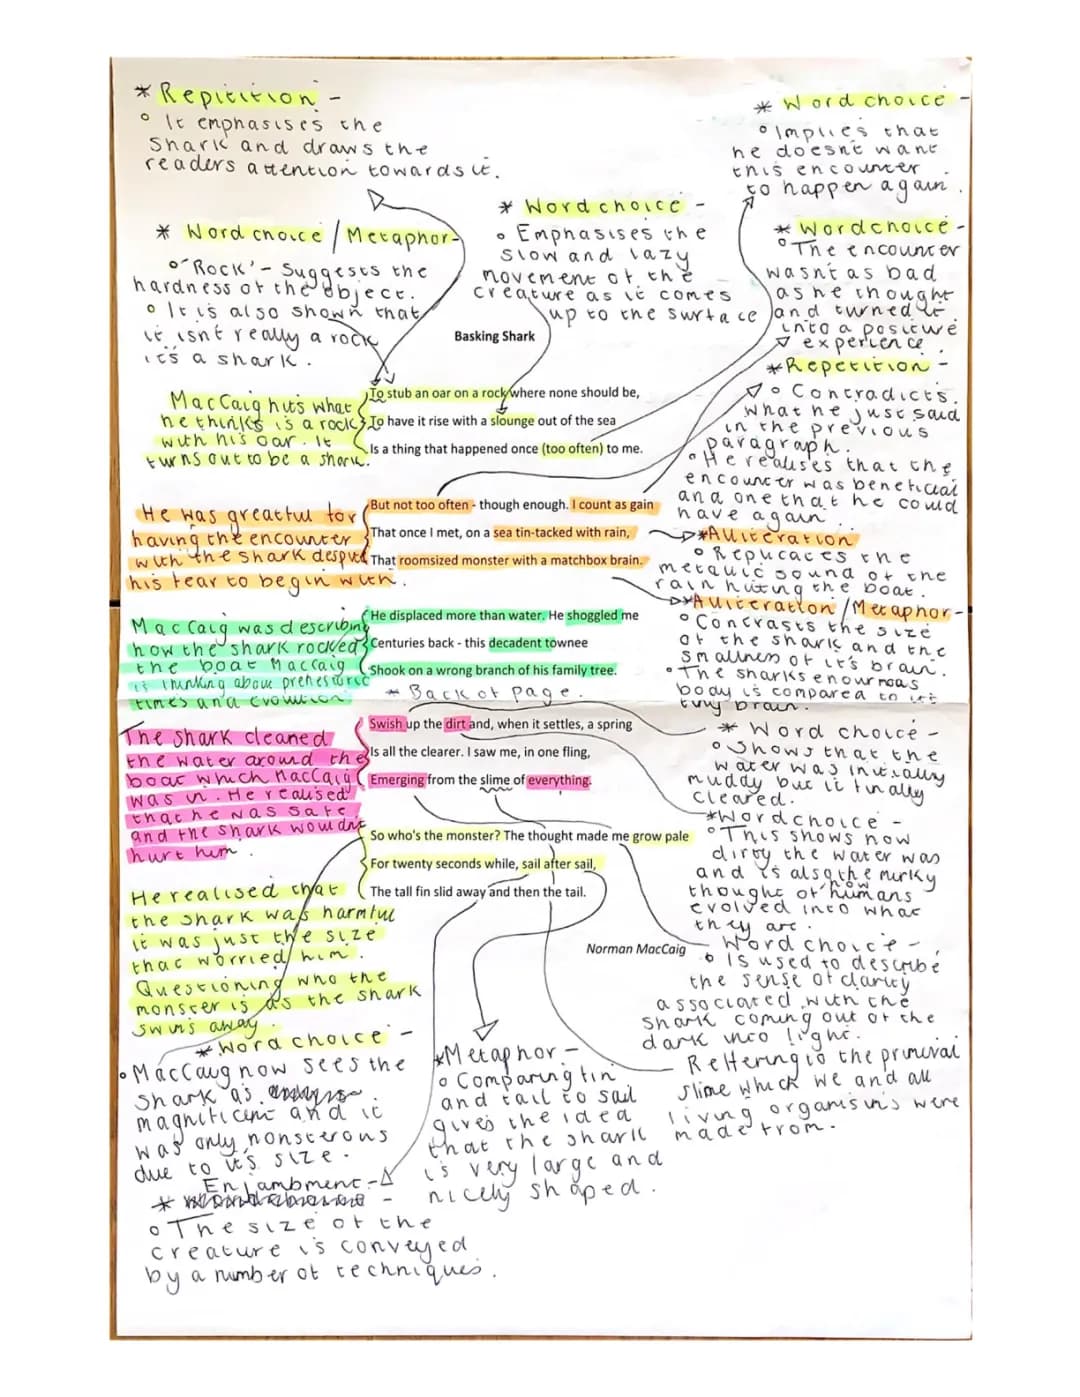 * Repitition -
° It emphasises the
shark and draws the
readers attention towards it.
* Word choice -
° Implies that
he doesnt want
this encounter
to happen again.
* Word choice / Metaphor -
° 'Rock' - Suggests the
hardness of the object.
° It is also shown that
it isnt really a rock
it's a shark.
* Word choice -
° Emphasises the
slow and lazy
movement of the
creature as it comes
up to the surface
* Wordchoice -
° The encounter
wasnt as bad
as he thought
and turned it
into a positive
experience.
Basking Shark
MacCaig hits what
he thinks is a rock
with his oar. It
turns out to be a shark.
To stub an oar on a rock where none should be,
To have it rise with a slounge out of the sea
Is a thing that happened once (too often) to me.
* Repetition -
° Contradicts
what he just said
in the previous
paragraph.
° He realises that the
encounter was beneficial
and one that he could
have again.
He was greatful for
having the encounter
with the shark despite
his fear to begin with.
But not too often - though enough. I count as gain
That once I met, on a sea tin-tacked with rain,
That roomsized monster with a matchbox brain.
* Alliteration
° Replicates the
metallic sound of the
rain hitting the boat.
* Alliteration / Metaphor -
° Contrasts the size
of the shark and the
smallness of it's brain.
° The sharks enourmoas
body is compared to its
tiny brain.
MacCaig was describing
how the shark rocked
the boat MacCaig
is thinking about prehestoric
times and evolution
He displaced more than water. He shoggled me
Centuries back - this decadent townee
Shook on a wrong branch of his family tree.
* Back of page.
The shark cleaned
the water around the
boat which MacCaig
was in. He realised
that he was safe
and the shark wouldnt
hurt him.
Swish up the dirt and, when it settles, a spring
Is all the clearer. I saw me, in one fling,
Emerging from the slime of everything.
* Word choice -
° Shows that the
water was initially
muddy but it finally
cleared.
* Wordchoice -
° This shows how
dirty the water was
and is also the murky
thought of how humans
evolved into what
they are.
So who's the monster? The thought made me grow pale
For twenty seconds while, sail after sail,
The tall fin slid away and then the tail.
Norman MacCaig
He realised that
the shark was harmful
it was just the size
that worried him.
Questioning who the
monster is as the shark
swims away.
Word choice -
° Is used to describe
the sense of clarity
associated with the
shark coming out of the
dark into light.
Reffering to the primeval
slime which we and all
living organism's were
made from.
* Word choice -
° MacCaig now sees the
shark as
magnificent and it
was only monsterous
due to it's size.
* Metaphor -
° Comparing fin
and tail to sail
gives the idea
that the shark
is very large and
nicely shaped.
Enjambment -
* -
° The size of the
creature is conveyed
by a number of techniques.